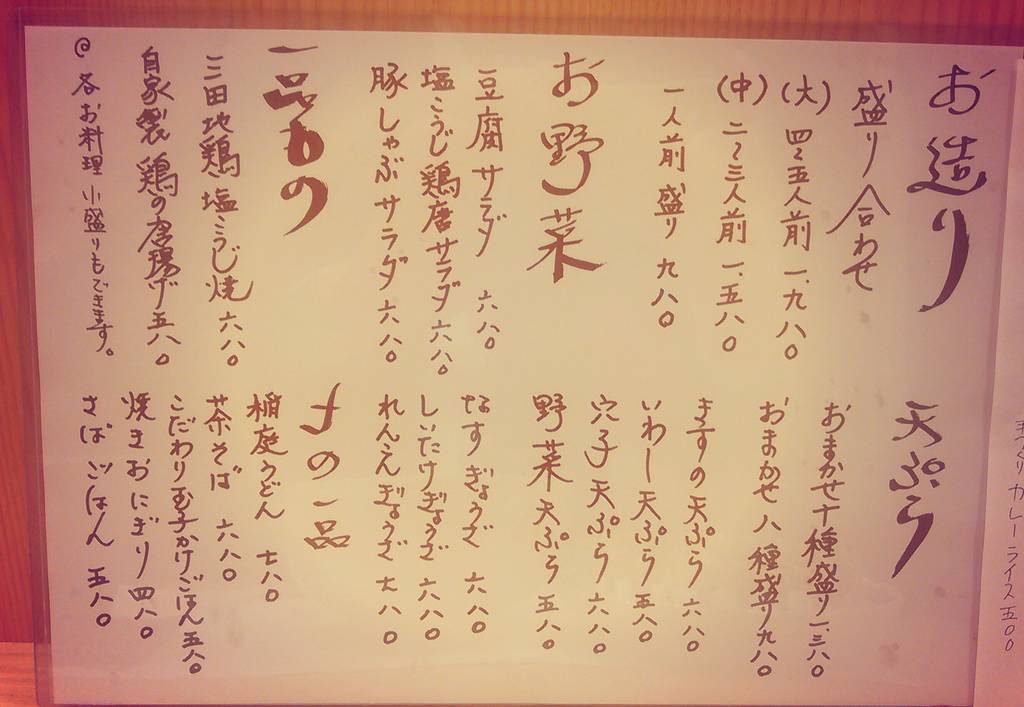 お造り
盛り合わせ
(大) 四〜五人前 一、九八〇
(中) 二〜三人前 一、五八〇
一人前盛り 九八〇
お野菜
豆腐サラダ 六八〇
塩こうじ鶏唐サラダ 六八〇
豚しゃぶサラダ 六八〇
一品もの
三田地鶏塩こうじ焼 六八〇
自家製鶏の唐揚げ 五八〇
@ 各お料理小盛りもできます。
天ぷら
おまかせ十種盛り 一、三八〇
おまかせ八種盛り 九八〇
きすの天ぷら 六八〇
いわし天ぷら 五八〇
穴子天ぷら 六八〇
野菜天ぷら 五八〇
なすぎょうざ 六八〇
しいたけぎょうざ 六八〇
れんこんぎょうざ 七八〇
〆の一品
稲庭うどん 七八〇
茶そば 六八〇
こだわり玉子かけごはん 五八〇
焼きおにぎり 四八〇
さばごはん 五八〇
カレーライス 五〇〇